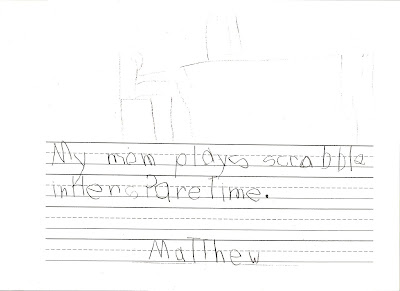 My mom plays scrabble
in Her spare Time.
Matthew